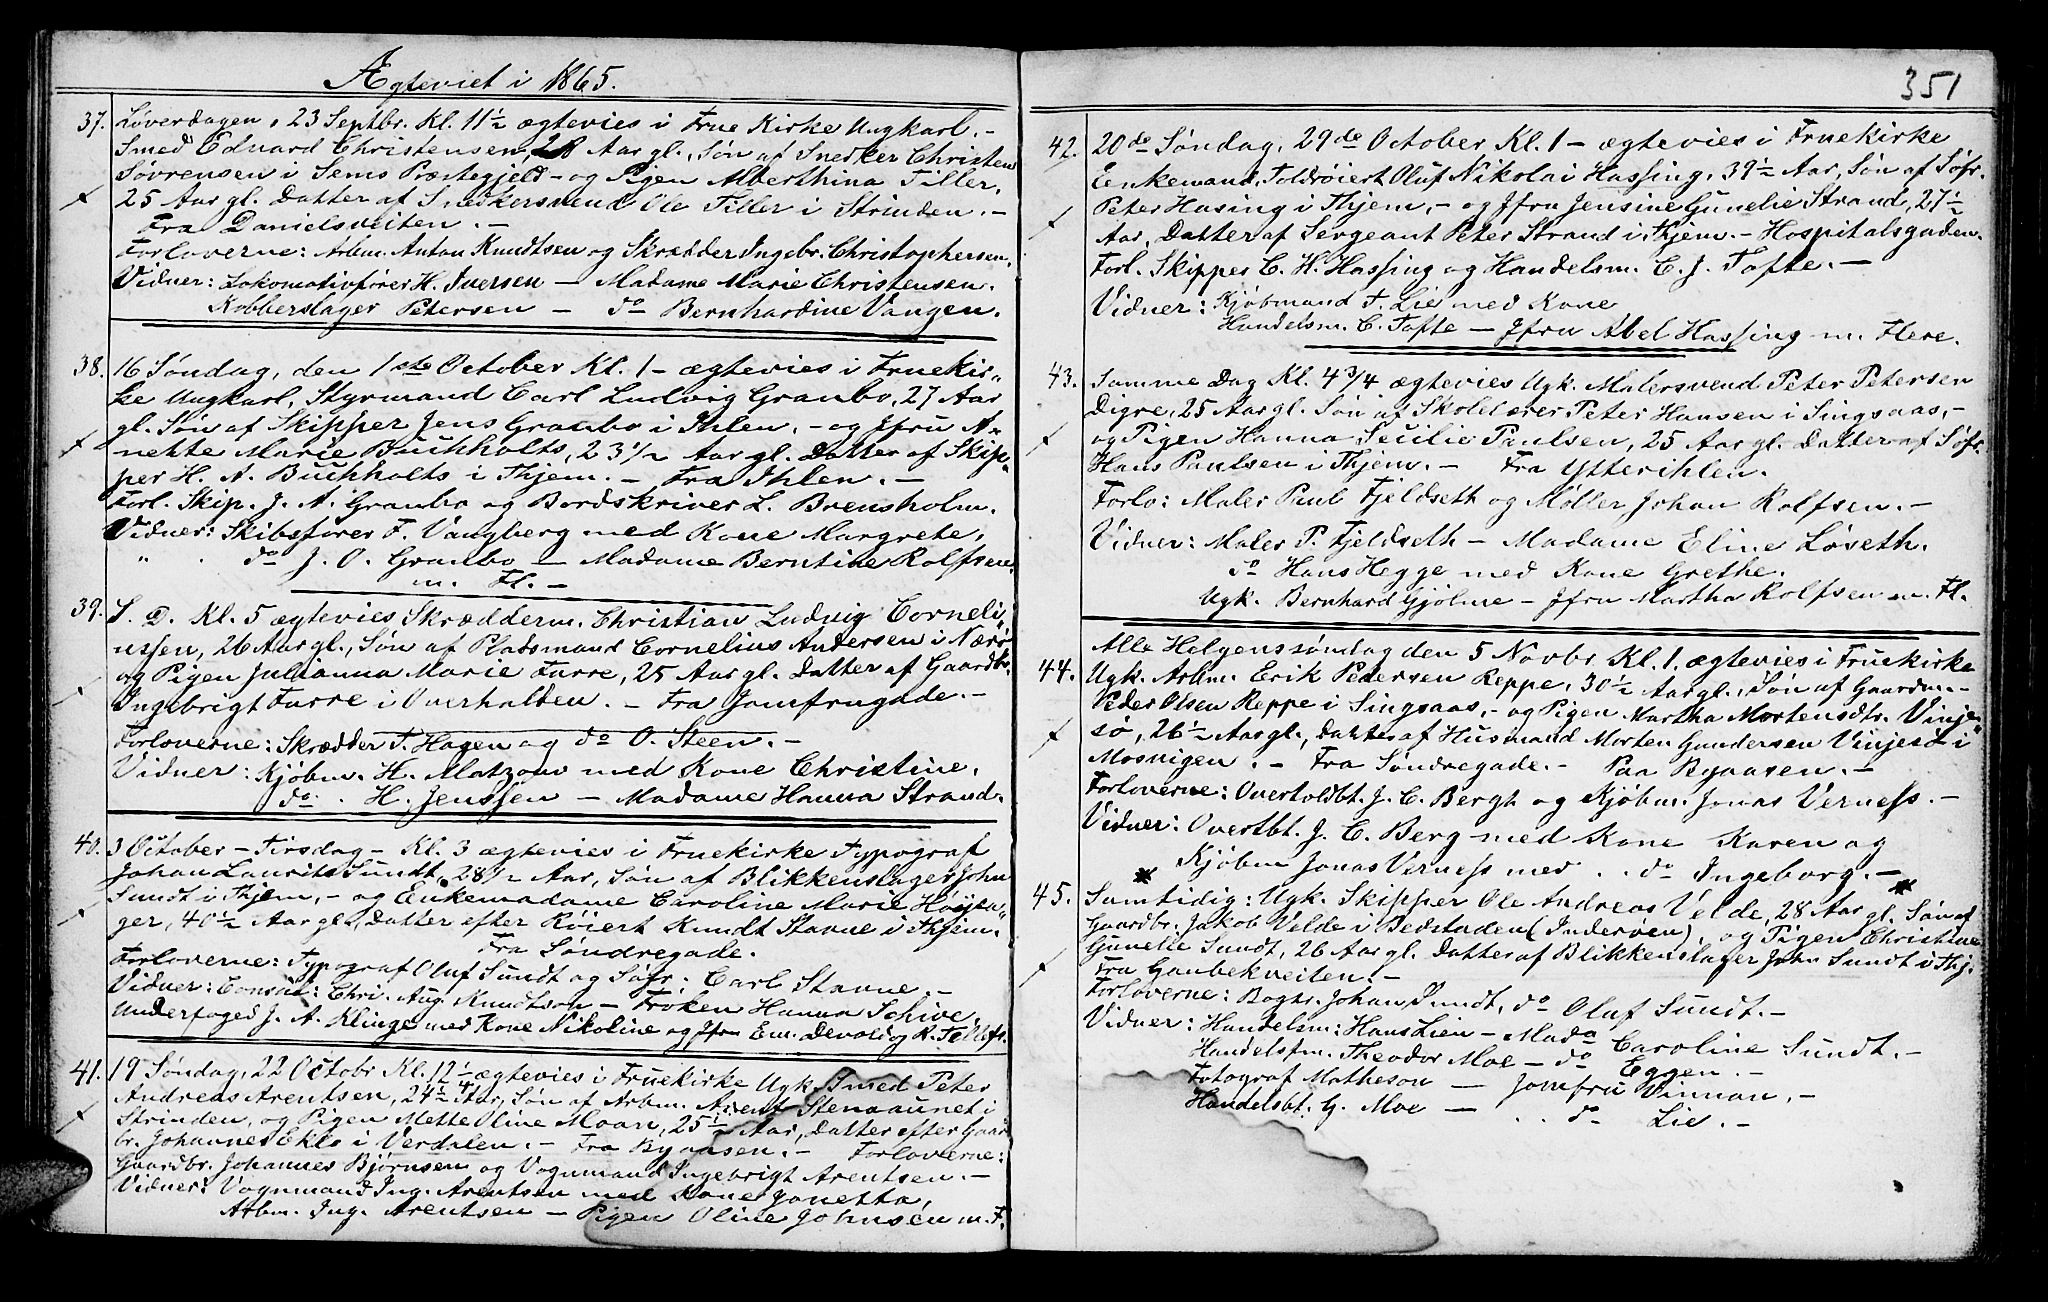 Ægteviet i 1865.
37. Løverdagen, 23 Septbr. Kl. 11½ ægtevies i Frue Kirke Ungkarl. -
Smed Edvard Christensen, 28 Aar gl., Søn af Snedker Christen
Sørensen i Sems Præstegjeld - og Pigen Alberthina Tiller,
25 Aar gl. Datter af Snedkersvend Ole Tiller i Strinden. -
Fra Danielsveiten. -
Forloverne: Arbm. Anton Knudtsen og Skrædder Ingebr. Christophersen.
Vidner: Lokomotivfører H. Iversen - Madame Marie Christensen.
Kobberslager Petersen - do Bernhardine Vangen.
38. 16 Søndag, den 1ste October Kl. 1 - ægtevies i Fruekir„
ke Ungkarl, Styrmand Carl Ludvig Granbo, 27 Aar
gl. Søn af Skipper Jens Granbo i Ihlen, - og Jfru A„
nette Marie Buchholts, 23½ Aar gl. Datter af Skip„
per H. A. Buchholts i Thjem. - Fra Ihlen. -
Forl. Skip. J. A. Granbo og Bordskriver L. Brensholm.
Vidner: Skibsfører F. Vangberg med Kone Margrete,
" . do J. O. Granbo - Madame Berntine Rolfsen
m. Fl. -
39. S. D. Kl. 5 ægtevies Skrædderm. Christian Ludvig Corneli„
ussen, 26 Aar gl., Søn af Pladsmand Cornelius Andersen i Nærø
og Pigen Julianna Marie Furre, 25 Aar gl. Datter af Gaardbr.
Ingebrigt Furre i Overhalden. - Fra Jomfrugade. -
Forloverne: Skrædder T. Hagen og do O. Steen. -
Vidner: Kjøbm. H. Matzow med Kone Christine.
do. H. Jenssen - Madame Hanna Strand.
40. 3 October - Tirsdag - Kl. 3 ægtevies i Fruekirke Typograf
Johan Laurits Sundt, 28½ Aar, Søn af Blikkenslager John
Sundt i Thjem, - og Enkemadame Caroline Marie Høyen„
ger, 40½ Aar gl., Datter efter Røiert Knudt Stavne i Thjem.
Fra Søndregade.
Forloverne: Typograf Oluf Sundt og Søfr: Carl Stavne. -
Vidner: Consul: Chri. Aug. Knudtson - Frøken Hanna Schive,
Underfoged J. A. Klinge med Kone Nikoline og Jfr Em. Devold og K. Tellefs.
41. 19 Søndag, 22 Octobr Kl. 12½ ægtevies i Fruekirke Ugk. Smed Peter
Andreas Arentsen, 24½ Aar, Søn af Arbm. Arent Stenaaunet i
Strinden, og Pigen Mette Oline Moan, 25½ Aar, Datter efter Gaard
br. Johannes Eklo i Verdalen. - Fra Byaasen. - Forloverne:
Gaardbr. Johannes Bjørnsen og Vognmand Ingebrigt Arentsen. -
Vidner: Vognmand Ing. Arentsen med Kone Jonetta,
Arbm. Ing. Arentsen - Pigen Oline Johnsen m. F.
351
42. 20de Søndag, 29de October Kl. 1 - ægtevies i Fruekirke
Eenkemand, Toldrøiert Oluf Nikolai Hassing, 39½ Aar, Søn af Søfr.
Peter Hasing i Thjem, - og Jfru Jensine Gunelie Strand, 27½
Aar, Datter af Sergeant Peter Strand i Thjem. - Hospitalsgaden.
Forl. Skipper C. H. Hassing og Handelsm. C. J. Tofte. -
Vidner: Kjøbmand T. Lie med Kone
Handelsm. C. Tofte - Jfru Abel Hassing m. Flere.
43. Samme Dag Kl. 4¾ ægtevies Ugk. Malersvend Peter Petersen
Digre, 25 Aar gl. Søn af Skolelærer Peter Hansen i Singsaas, -
og Pigen Hanna Secilie Paulsen, 25 Aar gl. Datter af Søfr.
Hans Paulsen i Thjem. - Fra Ytterihlen.
Forlo: Maler Paul Fjeldseth og Møller Johan Rolfsen. -
Vidner: Maler P. Fjeldseth - Madame Eline Løseth.
do Hans Hegge med Kone Grethe.
Ugk. Bernhard Gjølme - Jfru Martha Rolfsen m. Fl.
Alle Helgenssøndag den 5 Novbr. Kl. 1. ægtevies i Fruekirke
44. Ugk. Arbm. Erik Pedersen Reppe, 30½ Aar gl., Søn af Gaardm. -
Peder Olsen Reppe i Singsaas, - og Pigen Martha Mortensdtr. Vinje„
sø, 26½ Aar gl., Datter af Husmand Morten Gundersen Vinjesø i
Mosvigen. - Fra Søndregade. - Paa Byaasen. -
Forloverne: Overtoldbt. J. C. Bergh og Kjøbm. Jonas Verness. -
Vidner: Overtbt. J. C. Berg med Kone Karen og
Kjøbm Jonas Verness med .. do Ingeborg. -
45. Samtidig: Ugk. Skipper Ole Andreas Velde, 28 Aar gl. Søn af
Gaardbr. Jakob Velde i Bedstaden (Inderøen), og Pigen Christine
Gunelie Sundt, 26 Aar gl. Datter af Blikkenslager John Sundt i Thj.
Fra Gaubekveiten. -
Forloverne: Bogtr. Johan Sundt, do Oluf Sundt. -
Vidner: Handelsm: Hans Lien - Mada Caroline Sundt. -
Handelsfm. Theodor Moe - do Eggen. -
Fotograf Matheson - Jomfru Vinnan, -
Handelsbt. G. Moe - .. do Lie. -